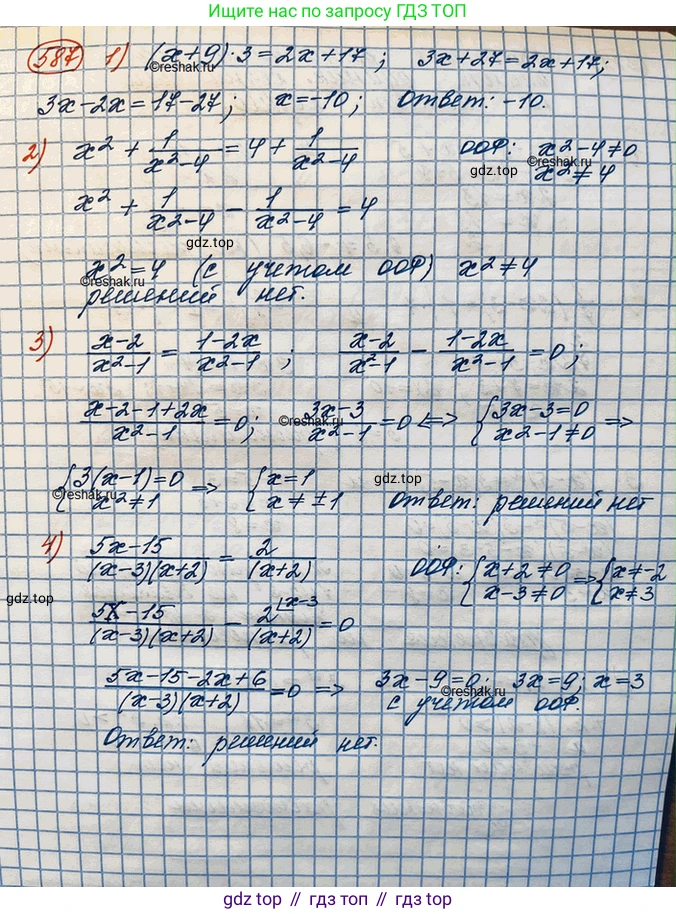 Ищите нас по запросу ГДЗ ТОП
587 1) (x+9)·3=2x+17; 3x+27=2x+17;
©reshak.ru
3x-2x=17-27; x=-10; Ответ: -10.
2) x² + 1/(x²-4) = 4 + 1/(x²-4) ООФ: x²-4≠0
©reshak.ru
gdz.top x²≠4
x² + 1/(x²-4) - 1/(x²-4) = 4
gdz.top
x²=4 (с учетом ООФ) x²≠4
©reshak.ru
решений нет.
3) (x-2)/(x²-1) = (1-2x)/(x²-1); (x-2)/(x²-1) - (1-2x)/(x²-1) = 0;
(x-2-1+2x)/(x²-1) = 0; (3x-3)/(x²-1) = 0 <=> { 3x-3=0 x²-1≠0 =>
©reshak.ru
gdz.top
{ 3(x-1)=0 x²≠1 => { x=1 x≠±1 Ответ: решений нет
©reshak.ru
4) (5x-15)/((x-3)(x+2)) = 2/(x+2) ООФ: { x+2≠0 x-3≠0 => { x≠-2 x≠3
gdz.top
gdz.top
(5x-15)/((x-3)(x+2)) - 2/(x+2) x-3 = 0
(5x-15-2x+6)/((x-3)(x+2)) = 0 => 3x-9=0; 3x=9; x=3
©reshak.ru
с учетом ООФ.
Ответ: решений нет.
gdz.top // гдз.топ // gdz.top // гдз.топ